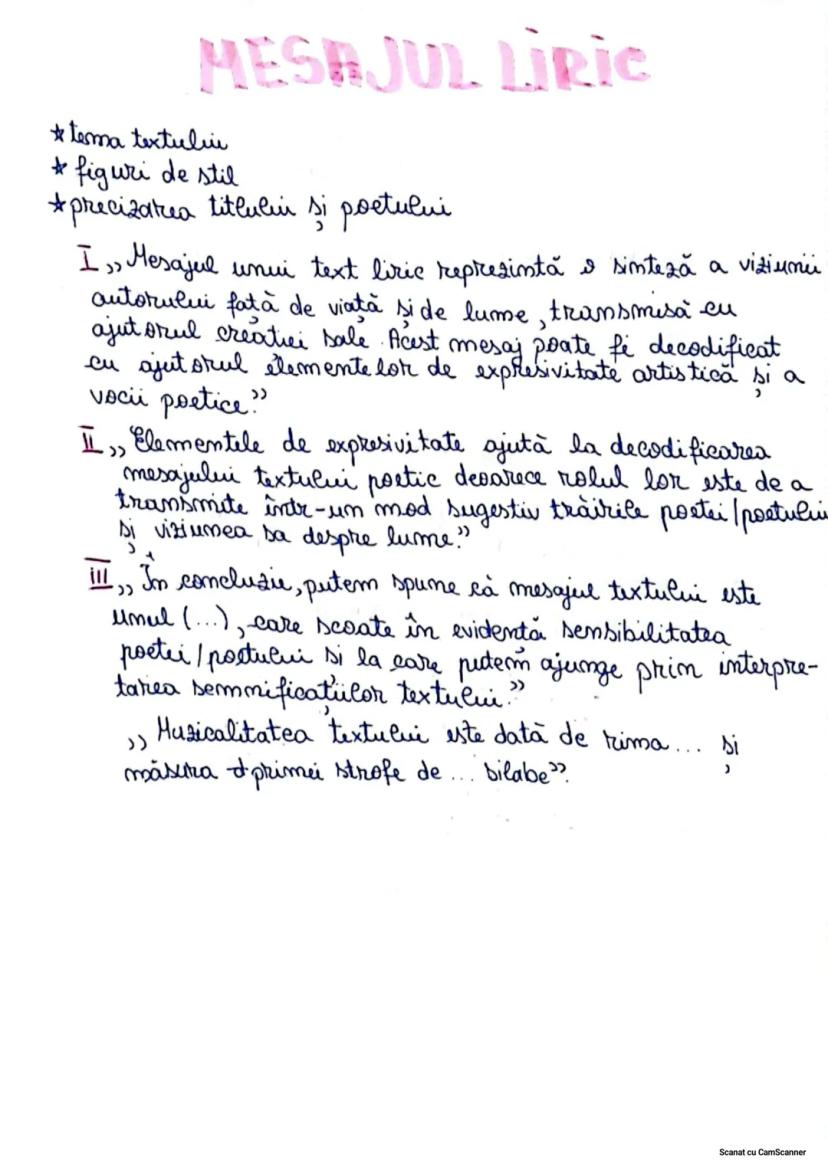 MESAJUL LIRIC
* tema textului
* figuri de stil
* precizarea titlului și poetului
I „Mesajul unui text liric reprezintă o sinteză a viziunii
autorului față de viață și de lume, transmisă cu
ajutorul creației sale. Acest mesaj poate fi decodificat
cu ajutorul elementelor de expresivitate artistică și a
vocii poetice.”
II „Elementele de expresivitate ajută la decodificarea
mesajului textului poetic deoarece rolul lor este de a
transmite într-un mod sugestiv trăirile poetei/poetului
și viziunea sa despre lume.”
III „În concluzie, putem spune că mesajul textului este
unul (...), care scoate în evidență sensibilitatea
poetei/poetului și la care putem ajunge prin interpre-
tarea semnificațiilor textului.”
„Muzicalitatea textului este dată de rima... și
măsura primei strofe de ... silabe”.
Scanat cu CamScanner